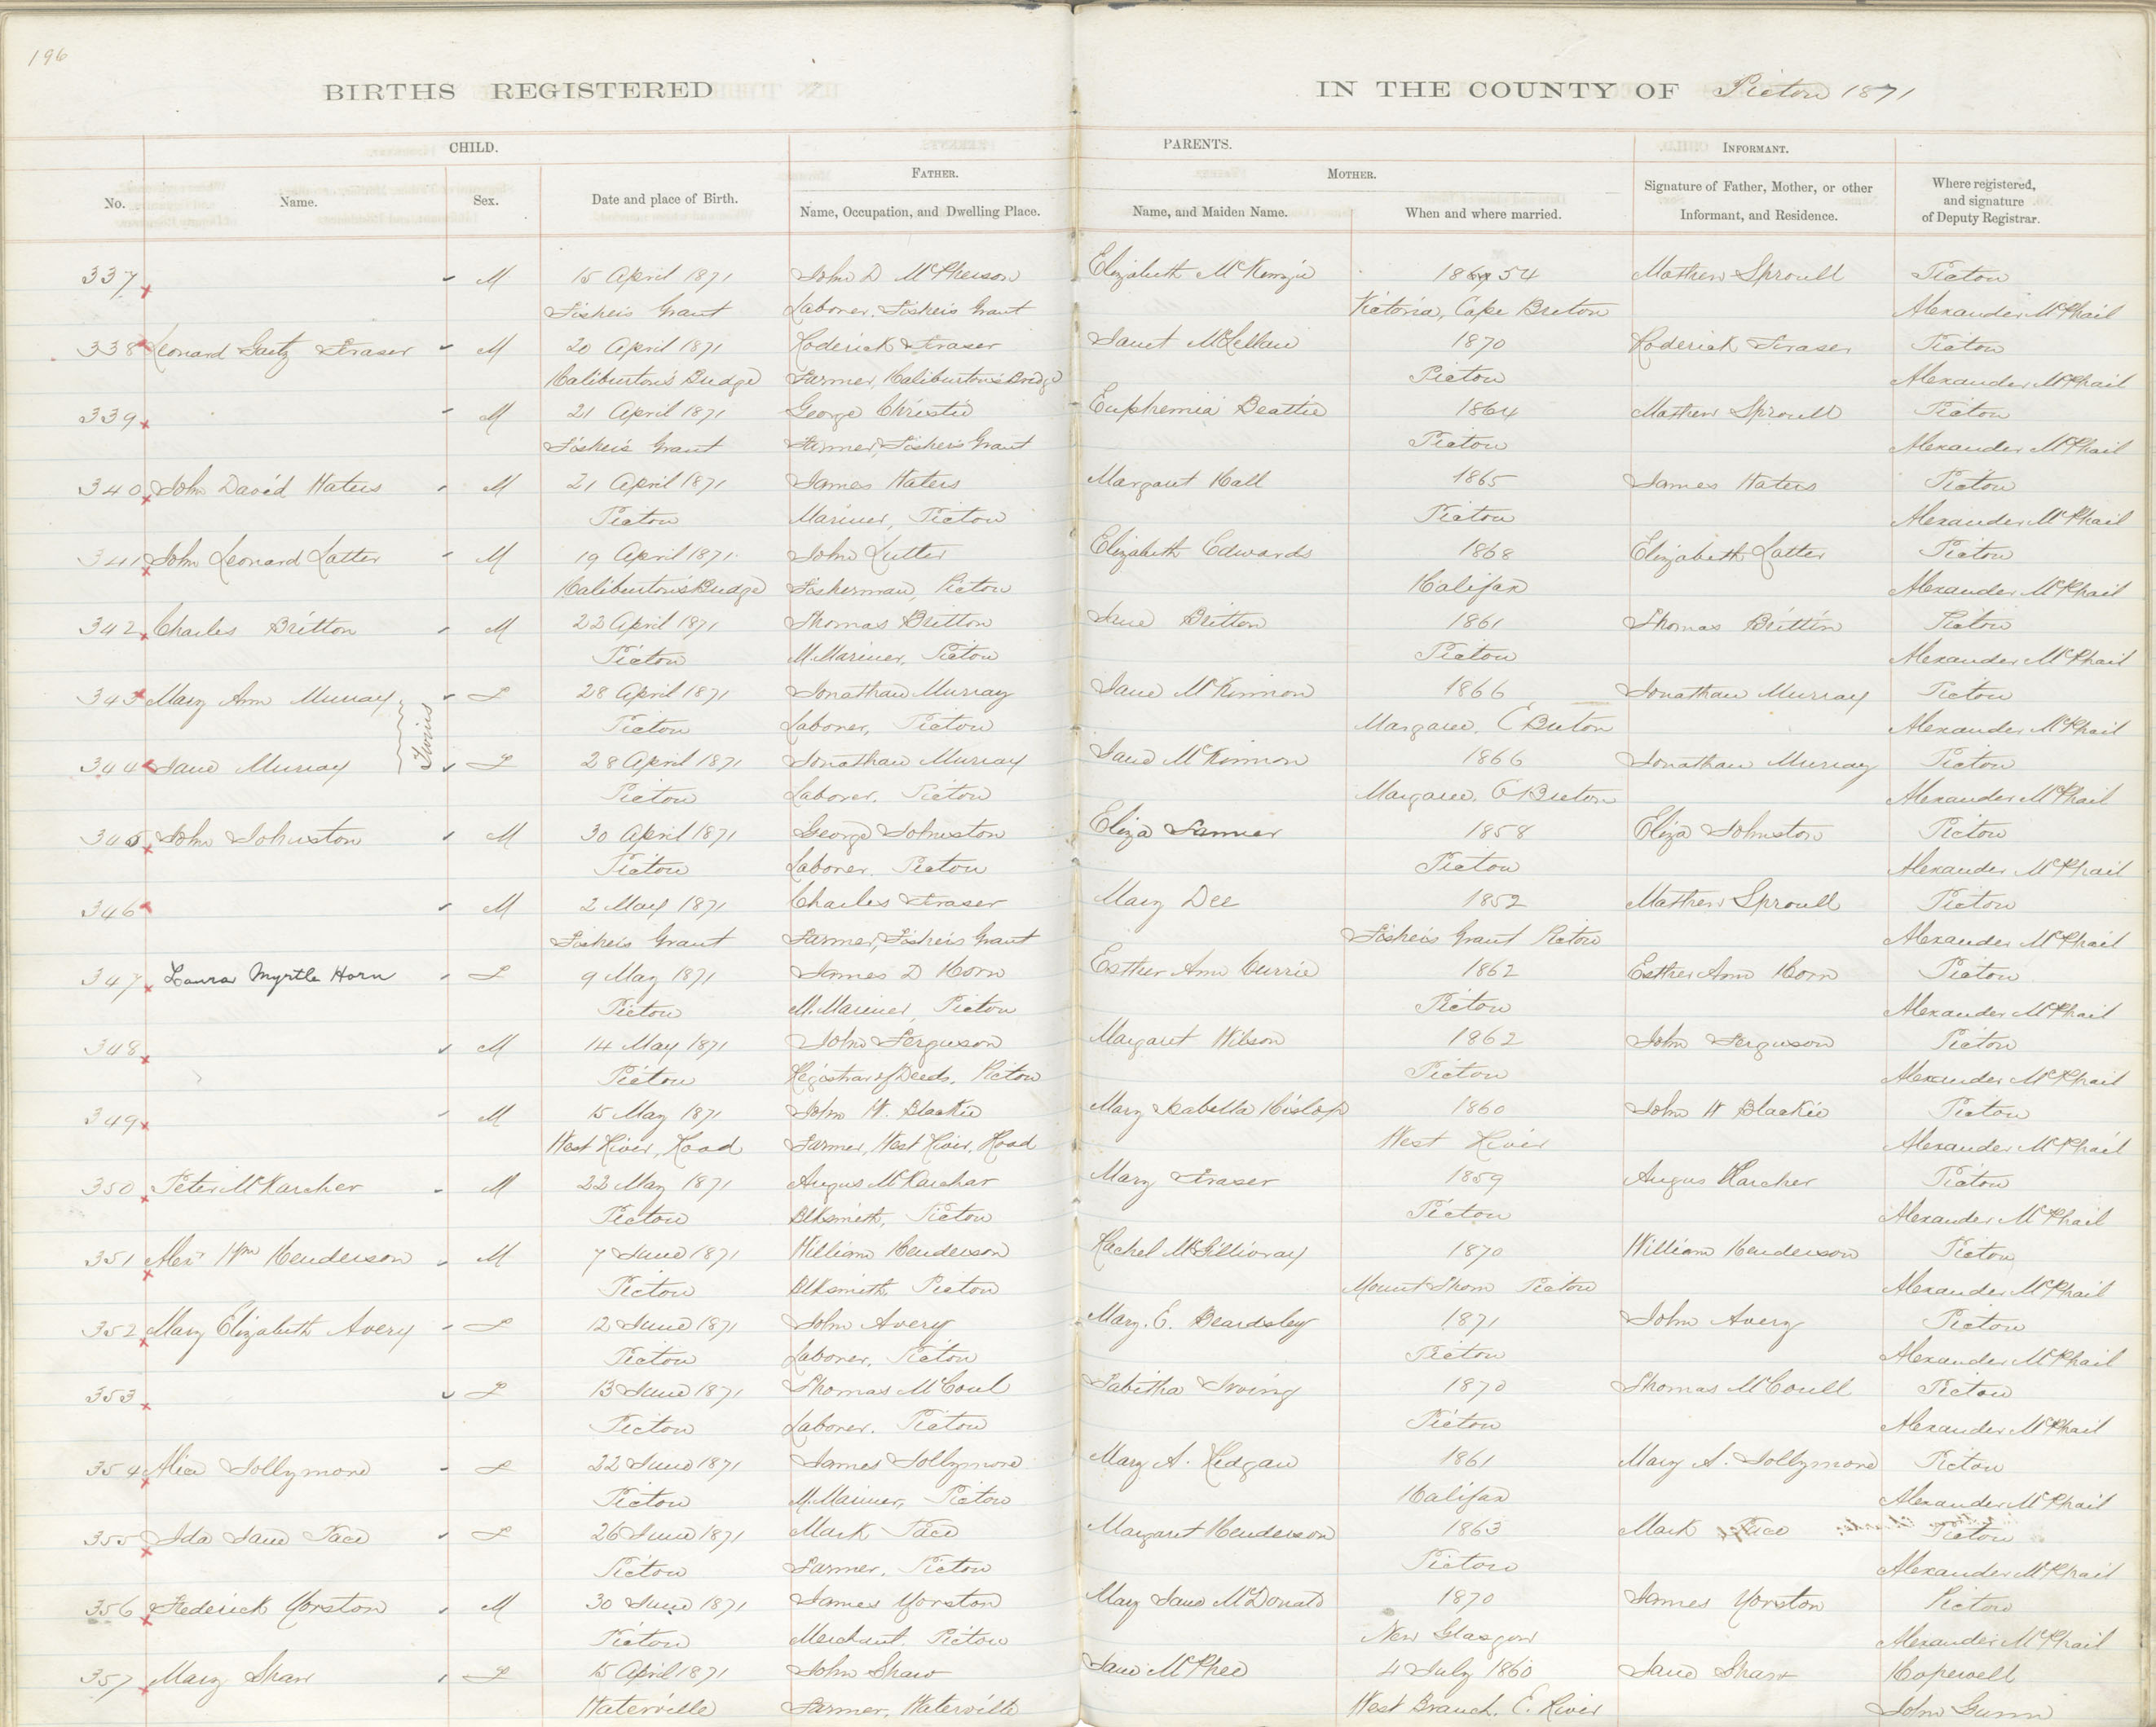 196
BIRTHS REGISTERED IN THE COUNTY OF Pictou 1871
CHILD. PARENTS. INFORMANT.
FATHER. MOTHER.
No. Name. Sex. Date and place of Birth. Name, Occupation, and Dwelling Place. Name, and Maiden Name. When and where married. Signature of Father, Mother, or other Informant, and Residence. Where registered, and signature of Deputy Registrar.
337 M 15 April 1871 John D McPherson Elizabeth McKenzie 54 Mathew Sproull Pictou
Fishers Grant Laborer, Fishers Grant Victoria, Cape Breton Alexander McPhail
338 Leonard Gaetz Fraser M 20 April 1871 Roderick Fraser Janet McLellan 1870 Roderick Fraser Pictou
Haliburton's Bridge Farmer, Haliburton's Bridge Pictou Alexander McPhail
339 M 21 April 1871 George Christie Euphemia Beattie 1864 Mathew Sproull Pictou
Fishers Grant Farmer, Fishers Grant Pictou Alexander McPhail
340 John David Waters M 21 April 1871 James Waters Margaret Hall 1865 James Waters Pictou
Pictou Mariner, Pictou Pictou Alexander McPhail
341 John Leonard Latter M 19 April 1871 John Lutter Elizabeth Edwards 1868 Elizabeth Latter Pictou
Haliburton's Bridge Fisherman, Pictou Halifax Alexander McPhail
342 Charles Britton M 22 April 1871 Thomas Britton Jane Britton 1861 Thomas Brittin Pictou
Pictou M. Mariner, Pictou Pictou Alexander McPhail
343 Mary Ann Murray F 28 April 1871 Jonathan Murray Jane McKinnon 1866 Jonathan Murray Pictou
Twins
Pictou Laborer, Pictou Margaree, C Breton Alexander McPhail
344 Jane Murray F 28 April 1871 Jonathan Murray Jane McKinnon 1866 Jonathan Murray Pictou
Pictou Laborer, Pictou Margaree, C Breton Alexander McPhail
345 John Johnston M 30 April 1871 George Johnston Eliza 1858 Eliza Johnston Pictou
Pictou Laborer, Pictou Pictou Alexander McPhail
346 M 2 May 1871 Charles Fraser Mary Dee 1852 Mathew Sproull Pictou
Fishers Grant Farmer, Fishers Grant Fishers Grant Pictou Alexander McPhail
347 Laura Myrtle Horn F 9 May 1871 James D Horn Esther Ann Currie 1862 Esther Ann Horn Pictou
Pictou M. Mariner, Pictou Pictou Alexander McPhail
348 M 14 May 1871 John Ferguson Margaret Wilson 1862 John Ferguson Pictou
Pictou Registrar of Deeds, Pictou Pictou Alexander McPhail
349 M 15 May 1871 John W. Blackie Mary Isabella Hislop 1860 John W Blackie Pictou
West River, Road Farmer, West River, Road West River Alexander McPhail
350 Peter McKarcher M 22 May 1871 Angus McKarchar Mary Fraser 1859 Angus Karcher Pictou
Pictou Blksmith, Pictou Pictou Alexander McPhail
351 Alexr Wm Henderson M 7 June 1871 William Henderson Rachel McGillivray 1870 William Henderson Pictou
Pictou Blksmith, Pictou Mount Thom Pictou Alexander McPhail
352 Mary Elizabeth Avery F 12 June 1871 John Avery Mary. E. Beardsley 1871 John Avery Pictou
Pictou Laborer, Pictou Pictou Alexander McPhail
353 F 13 June 1871 Thomas McCoul Tabitha Irving 1870 Thomas McCoull Pictou
Pictou Laborer, Pictou Pictou Alexander McPhail
354 Alice Jollymore F 22 June 1871 James Jollymore Mary A. Hedgan 1861 Mary A. Jollymore Pictou
Pictou M. Mariner, Pictou Halifax Alexander McPhail
355 Ida Jane Pace F 26 June 1871 Mark Pace Margaret Henderson 1863 Mark Pace Pictou
Pictou Farmer, Pictou Pictou Alexander McPhail
356 Frederick Yorston M 30 June 1871 James Yorston Mary Jane McDonald 1870 James Yorston Pictou
Pictou Merchant, Pictou New Glasgow Alexander McPhail
357 Mary Shaw F 15 April 1871 John Shaw Jane McPhee 4 July 1860 Jane Shaw Hopewell
Waterville Farmer, Waterville West Branch, E. River John Gunn